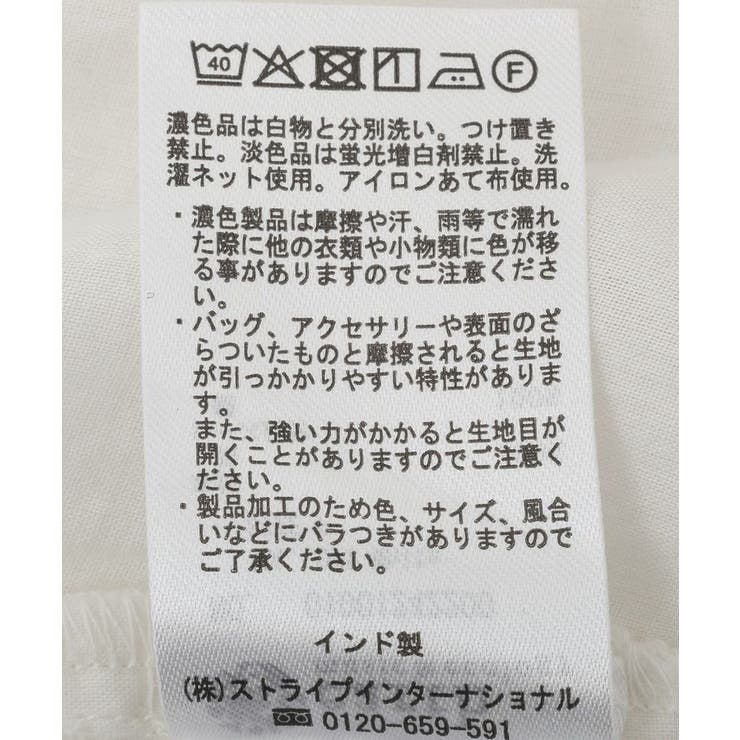 40 F
濃色品は白物と分別洗い。つけ置き
禁止。淡色品は蛍光増白剤禁止。洗
濯ネット使用。アイロンあて布使用。
・濃色製品は摩擦や汗、雨等で濡れ
た際に他の衣類や小物類に色が移
る事がありますのでご注意くださ
い。
・バッグ、アクセサリーや表面のざ
らついたものと摩擦されると生地
が引っかかりやすい特性がありま
す。
また、強い力がかかると生地目が
開くことがありますのでご注意く
ださい。
・製品加工のため色、サイズ、風合
いなどにバラつきがありますので
ご了承ください。
インド製
(株)ストライプインターナショナル
0120-659-591